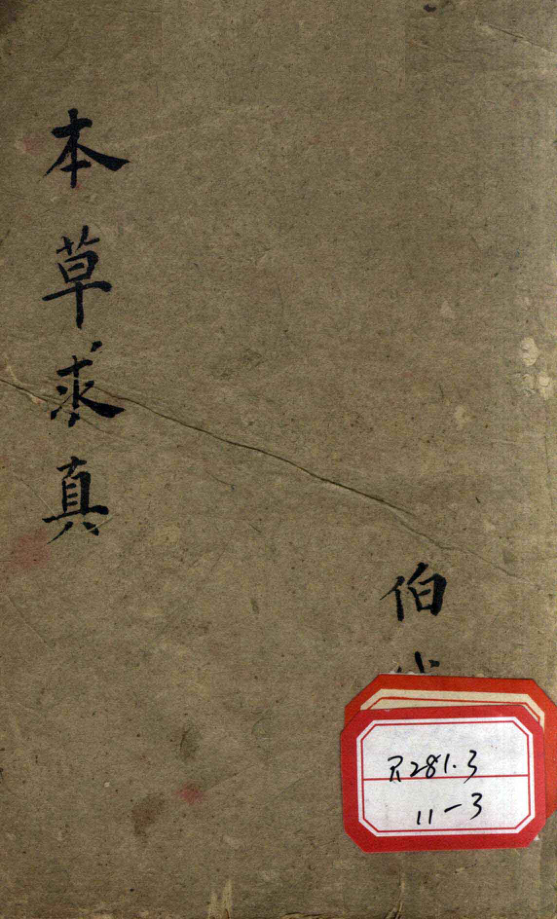 本草求真
伯
R281.3
11-3